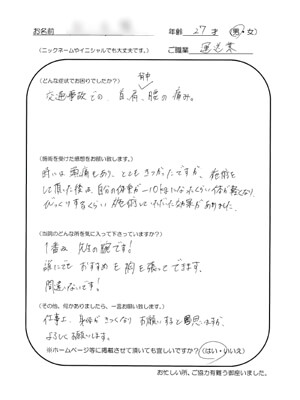 お名前
年齢 27才 (男・女)
(ニックネームやイニシャルでも大丈夫です。)
ご職業 運送業
(どんな症状でお困りでしたか?)
背中
交通事故での、首、肩、腰の痛み。
(施術を受けた感想をお願い致します。)
時には頭痛もあり、とてもきつかったですが、施術を
して頂いた後は、自分の体重が-10kgになったくらい体が軽くなり、
びっくりするくらい施術していただいた効果がありました。
(当院のどんな所を気に入って下さっていますか?)
1番は、先生の腕です!
誰にでもおすすめを胸を張ってできます。
間違いないです!
(その他、何かありましたら、一言お願い致します。)
仕事上、身体がきつくなりお願いすると思いますが、
よろしくお願いします。
※ホームページ等に掲載させて頂いても宜しいですか? (はい・いいえ)
お忙しい所、ご協力有難う御座いました。